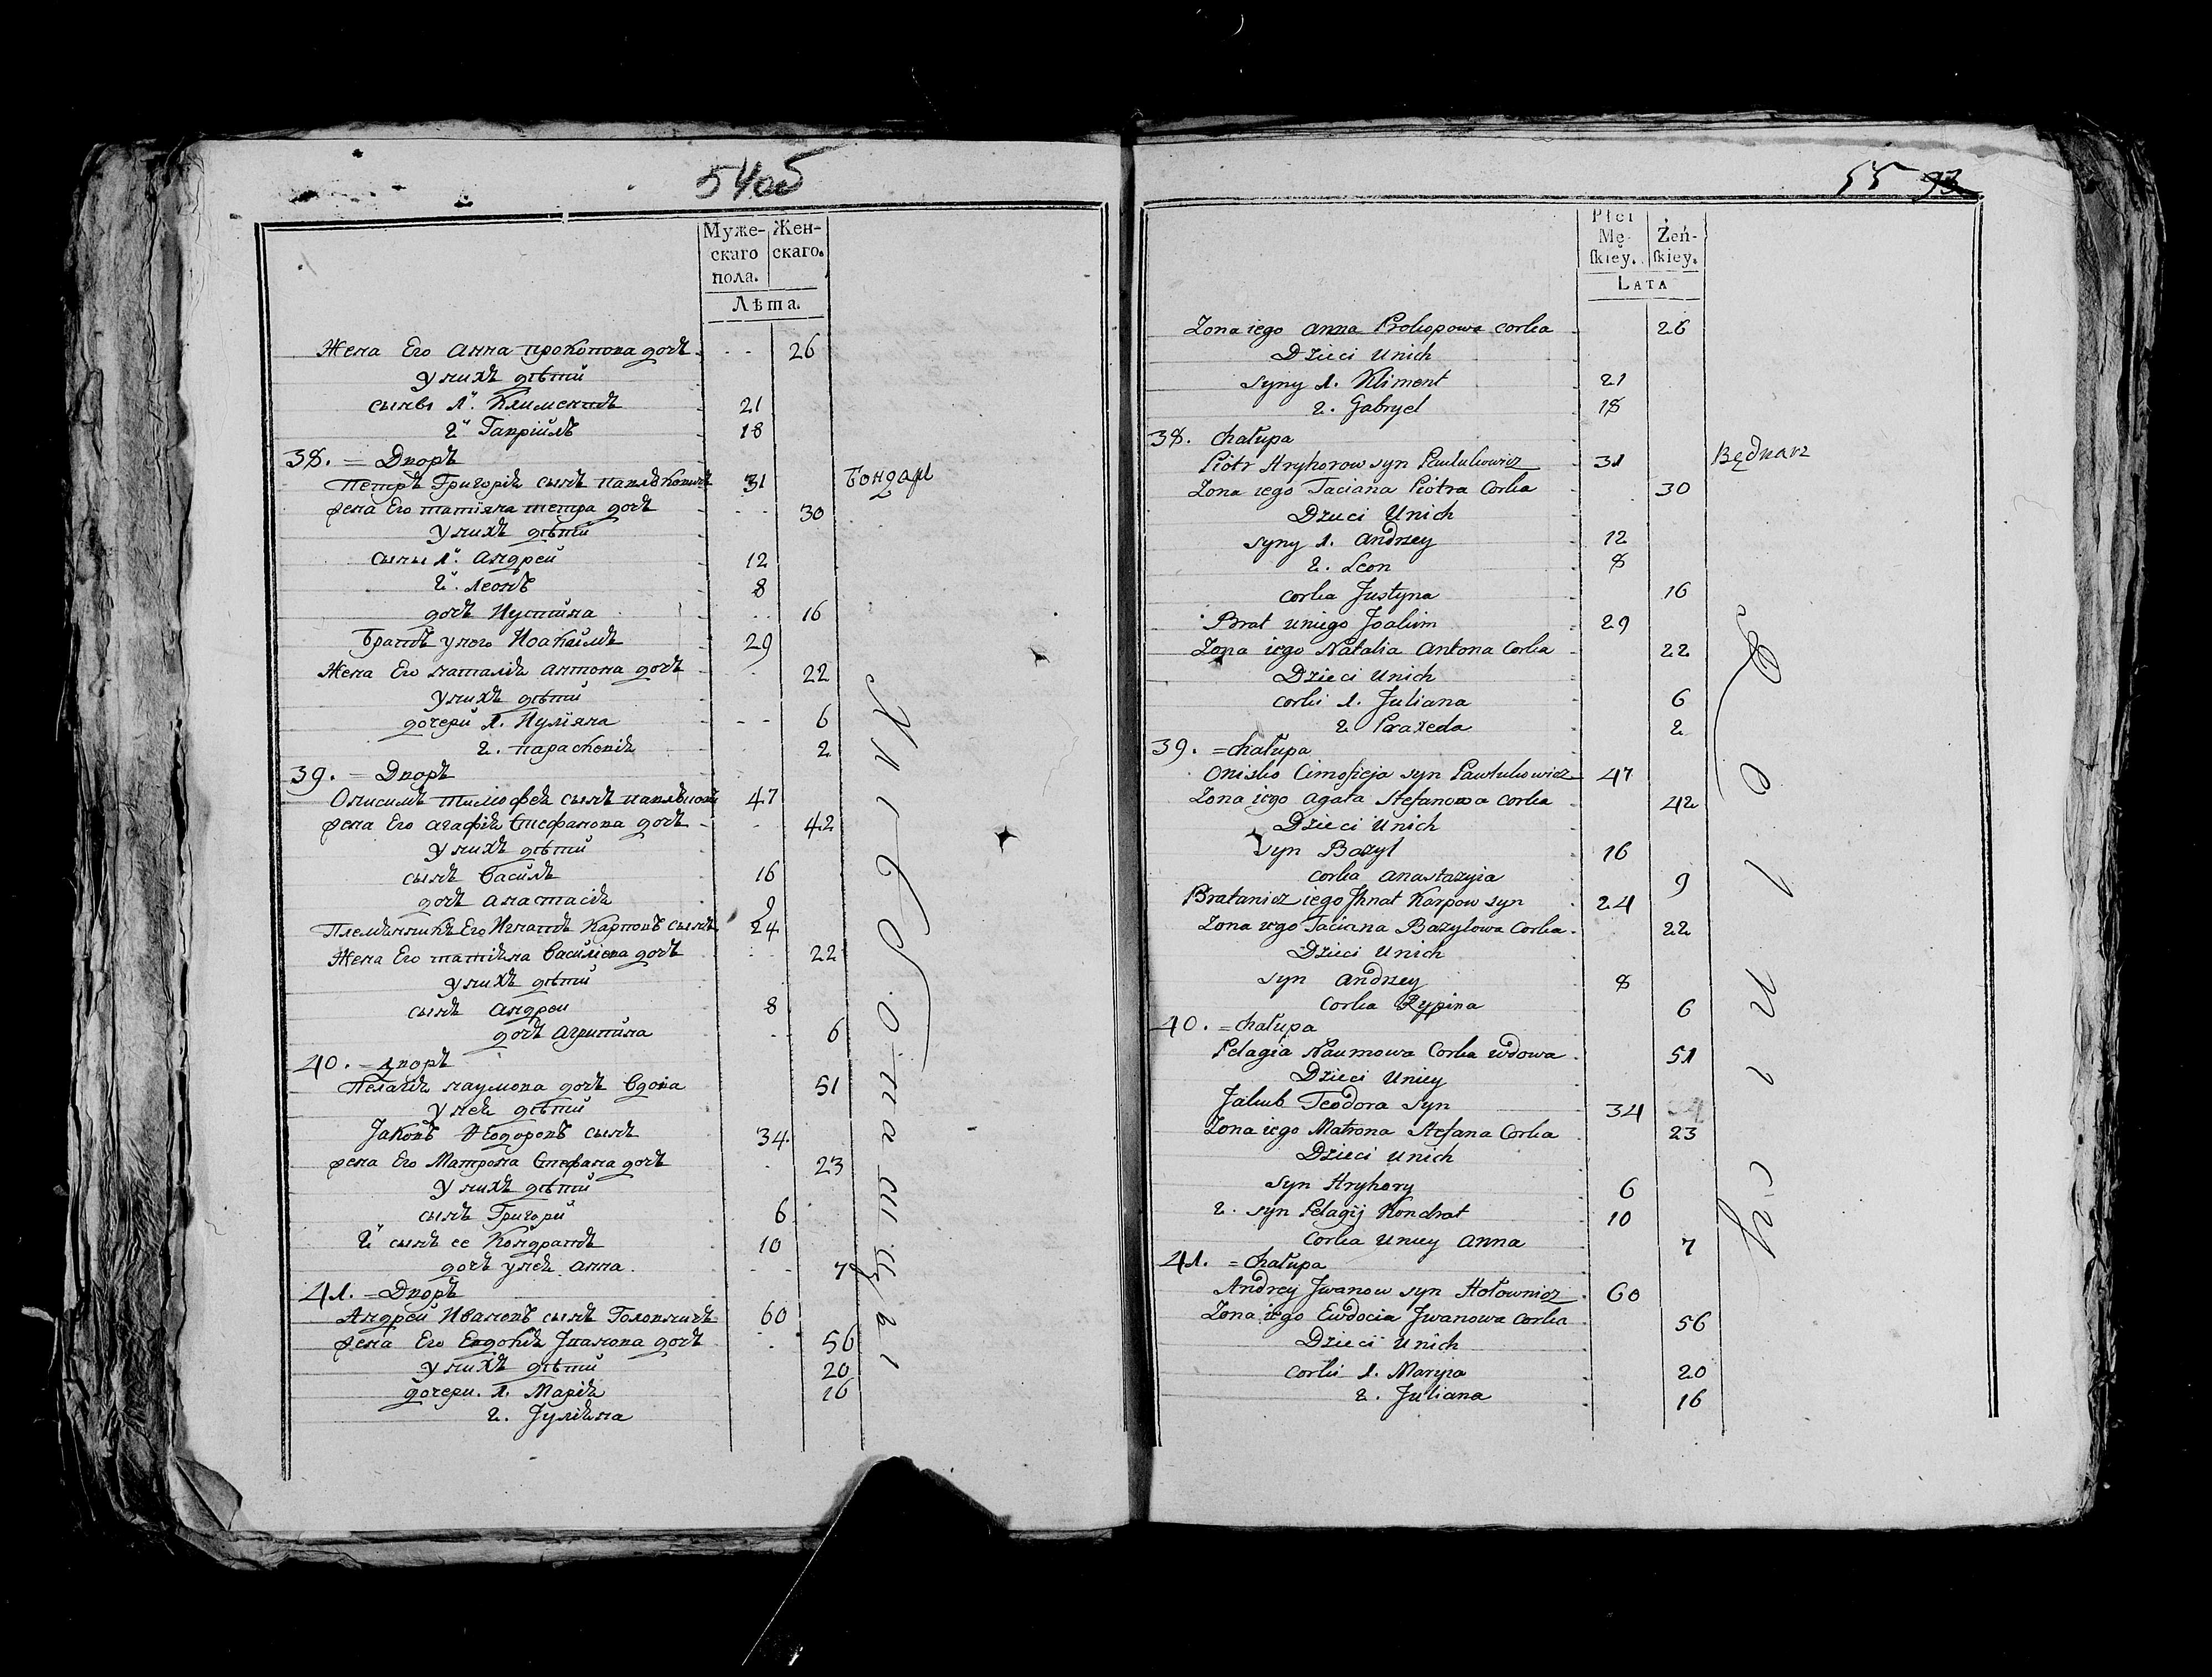 54об
Муже-
скаго
пола.
Жен-
скаго.
Лѣта.
Жена Его Анна Прокопова дочъ 26
У нихъ дѣти
сыны 1й. Климентъ 21
2й Гаврiилъ 18
38. = Дворъ
Петръ Григорiя сынъ Павлюковичъ 31 Бондарь
Жена Его Татiяна Петра дочъ 30
У нихъ дѣти
Сыны 1й. Андрей 12
2й. Леонъ 8
дочъ Иустина 16
Братъ у него Иоакимъ 29
Жена Его Наталiя Антона дочъ 22
У нихъ дѣти
дочери 1. Иулiяна 6
2. Парасковiя 2
39. = Дворъ
Онисимъ Тимофея сынъ 47
Жена Его Агафiя Стефанова дочъ 42
У нихъ дѣти
сынъ Василъ 16
дочъ Анастасiя 9
Племянникъ Его Игнатъ Карповъ сынъ 24
Жена Его Татiяна Василiова дочъ 22
У нихъ дѣти
сынъ Андреи 8
дочъ Агрипина 6
40. = Дворъ
Пелагiя Наумова дочъ Вдова 51
У ней дѣти
Jаковъ Ѳеодоровъ сынъ 34.
Жена Его Матрона Стефана дочъ 23
У нихъ дѣти
сынъ Григорiй 6
2й сынъ ее Кондратъ 10
дочъ у ней Анна. 7
41. = Дворъ
Андрей Ивановъ сынъ Головничъ 60
Жена Его Евдокiя Jванова дочъ 56
У нихъ дѣти 20
дочери. 1. Марiя 16
2. Jулiяна
55 93
Płci
Mę-
ſkiey.
Żeń-
ſkiey.
LATA
Zona iego Anna Prokopowa Corka 26
Dzieci Unich
Syny 1. Kliment 21
2. Gabryel 18
38. Chałupa
Piotr Hryhorow syn Pawlukowicz 31 Będnarz
Zona iego Taciana Piotra Corka 30
Dzieci Unich
Syny 1. Andrzey 12
2. Leon 8
Corka Justyna 16
Brat uniego Joakim 29
Zona iego Natalia Antona Corka 22
Dzieci Unich
Corki 1. Juliana 6
2 Praxeda 2
39. = Chałupa
Onisko Cimofieja syn Pawlukowicz 47
Zona iego Agata Stefanowa Corka 42
Dzieci Unich
Syn Bazyl 16
Corka Anastazyia 9
Bratanicz iego Jhnat Karpow syn 24
Zona iego Taciana Bazylowa Corka 22
Dzieci Unich
Syn Andrzey 8
Corka Rypina 6
40. = Chałupa
Pelagia Naumowa Corka wdowa 51
Dzieci Uniey
Jakub Teodora Syn 34
Zona iego Matrona Stefana Corka 23
Dzieci Unich
Syn Hryhory 6
2. syn Pelagij Kondrat 10
Corka Uniey Anna 7
41. = Chałupa
Andrey Jwanow syn Hołownicz 60
Zona iego Ewdocia Jwanowa Corka 56
Dzieci Unich
Corki 1. Maryia 20
2. Juliana 16